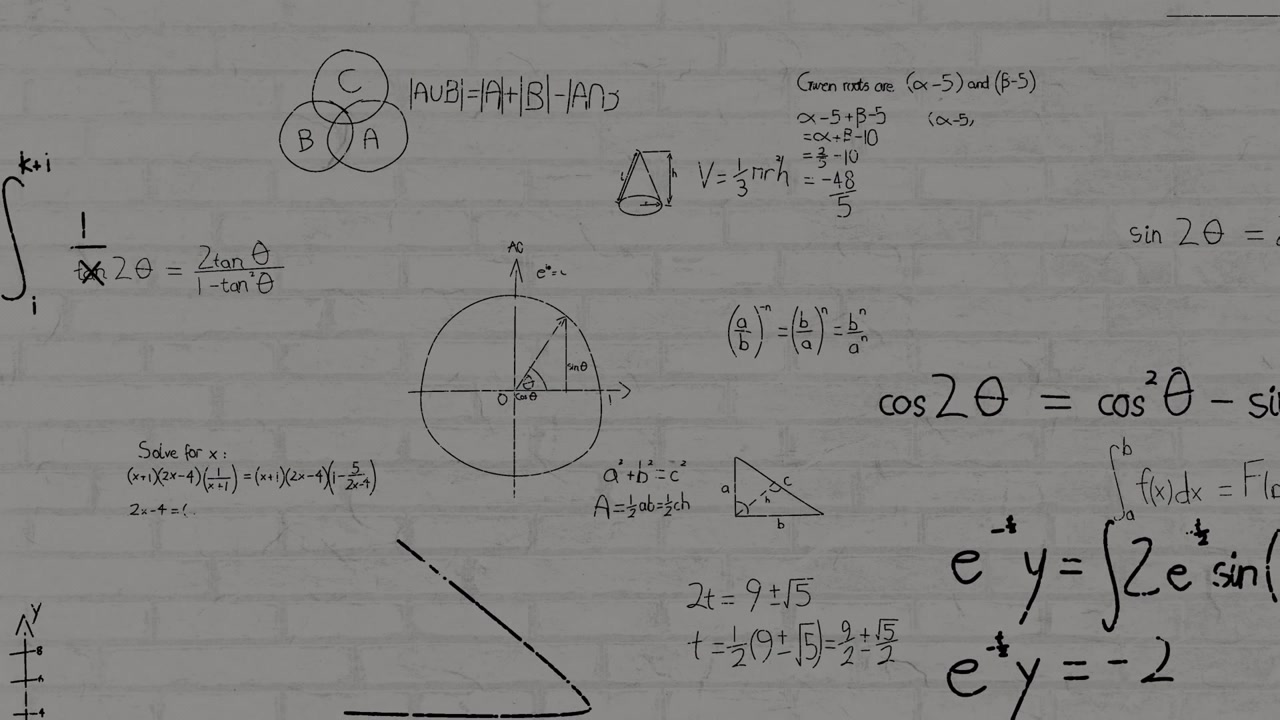 C
B A
|A∪B|=|A|+|B|-|A∩
Given roots are (α-5) and (β-5)
α-5+β-5 (α-5,
=α+β-10
=2/5-10
=-48/5
l h
V=1/3πr²h
k+i
∫
i
1
tan 2θ = 2tanθ/1-tan²θ
sin 2θ =
e
θ
sinθ
O cosθ 1
(a/b)^-n = (b/a)^n = b^n/a^n
cos2θ = cos²θ - si
Solve for x:
(x+1)(2x-4)(1/x+1)=(x+1)(2x-4)(1-5/2x-4)
2x-4=
a²+b²=c²
A=½ab=½ch
a c
h
b
∫_a^b f(x)dx = F(
y = ∫2e sin(
y = -2
2t= 9±√5
t=½(9±√5)=9/2±√5/2
y
8
4